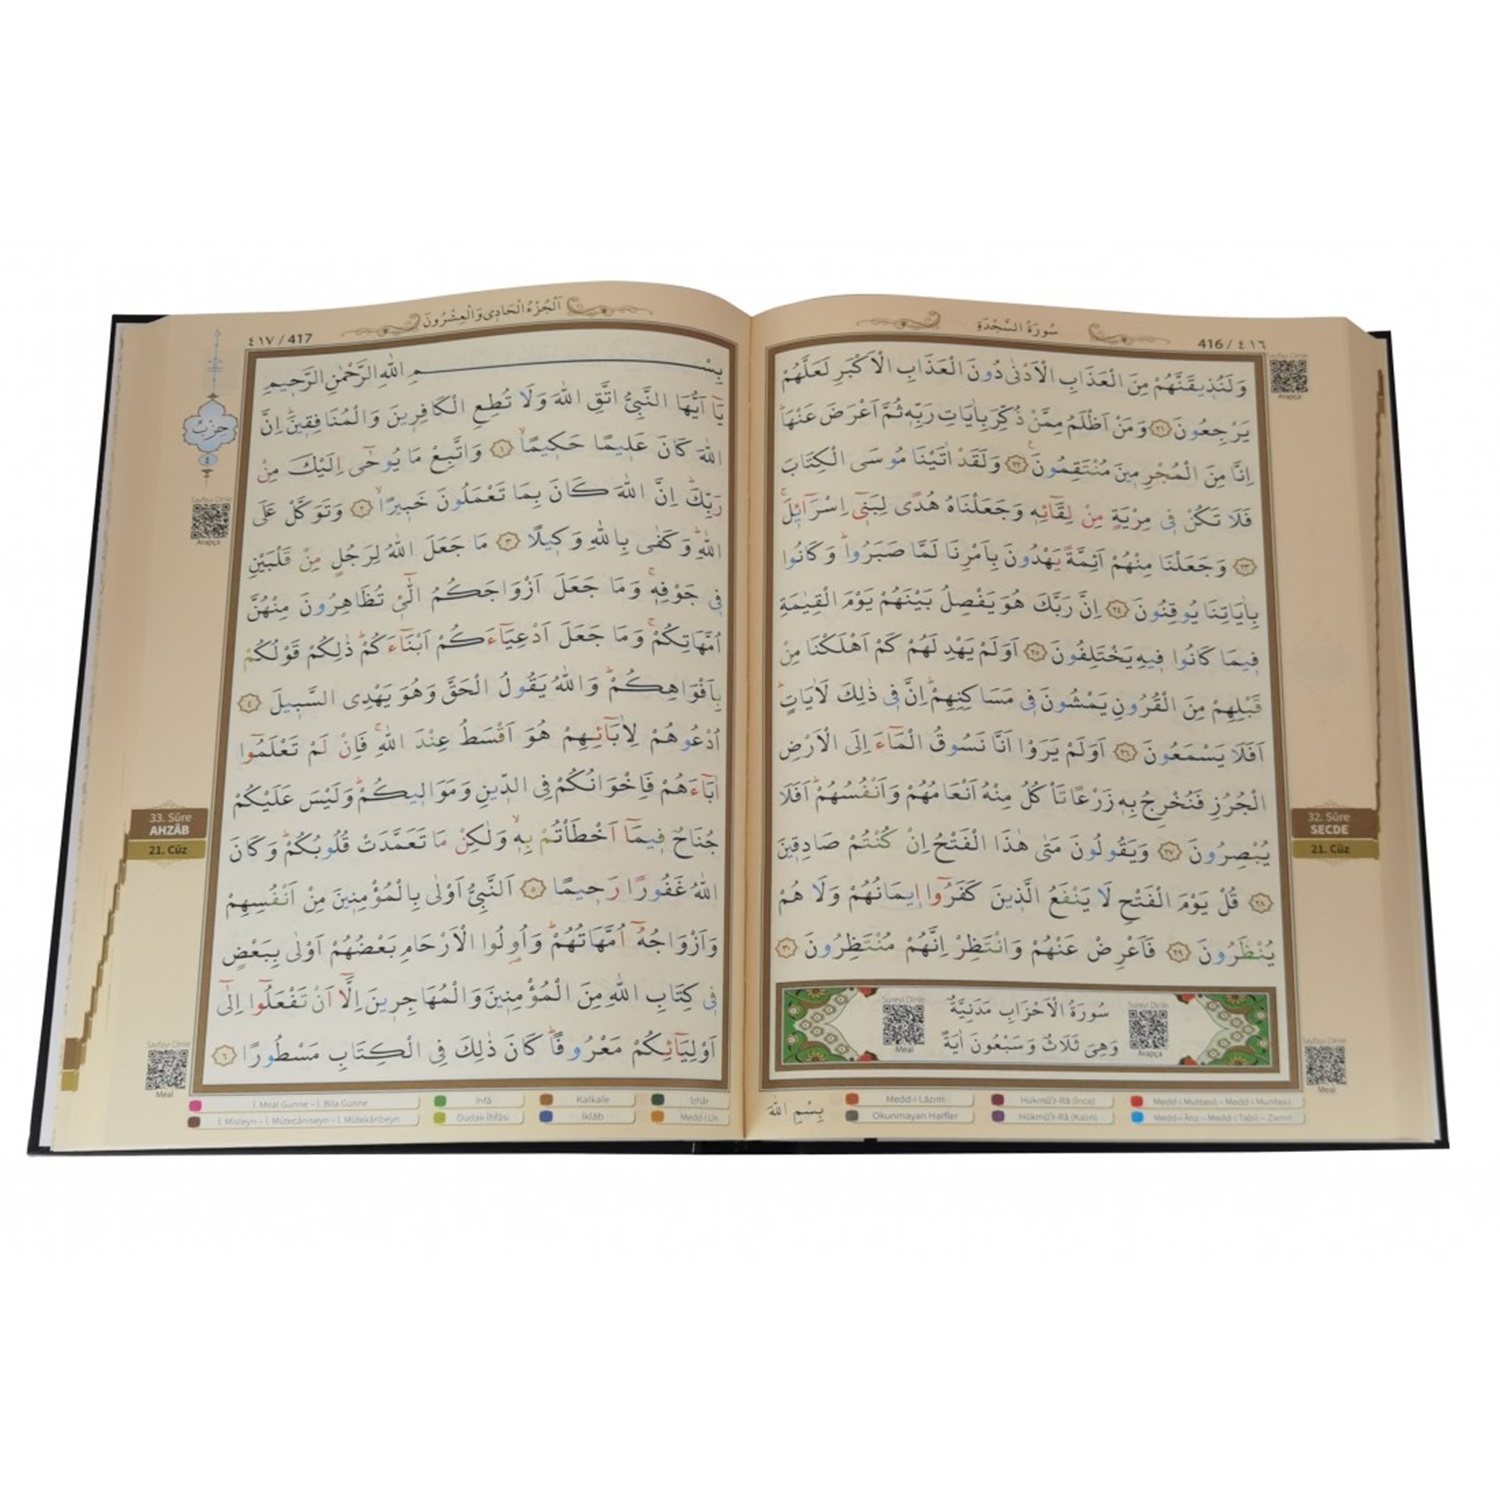 416 / ٤١٦
سُورَةُ السَّجْدَةِ
Sayfayı Dinle
Arapça
وَلَنُذٖيقَنَّهُمْ مِنَ الْعَذَابِ الْاَدْنٰى دُونَ الْعَذَابِ الْاَكْبَرِ لَعَلَّهُمْ
يَرْجِعُونَ ﴿٢١﴾ وَمَنْ اَظْلَمُ مِمَّنْ ذُكِّرَ بِاٰيَاتِ رَبِّهٖ ثُمَّ اَعْرَضَ عَنْهَاۜ
اِنَّا مِنَ الْمُجْرِمٖينَ مُنْتَقِمُونَ۟ ﴿٢٢﴾ وَلَقَدْ اٰتَيْنَا مُوسَى الْكِتَابَ
فَلَا تَكُنْ فٖى مِرْيَةٍ مِنْ لِقَٓائِهٖ وَجَعَلْنَاهُ هُدًى لِبَنٖٓى اِسْرَٓاءٖيلَۚ
﴿٢٣﴾ وَجَعَلْنَا مِنْهُمْ اَئِمَّةً يَهْدُونَ بِاَمْرِنَا لَمَّا صَبَرُواۜ وَكَانُوا
بِاٰيَاتِنَا يُوقِنُونَ ﴿٢٤﴾ اِنَّ رَبَّكَ هُوَ يَفْصِلُ بَيْنَهُمْ يَوْمَ الْقِيٰمَةِ
فٖيمَا كَانُوا فٖيهِ يَخْتَلِفُونَ ﴿٢٥﴾ اَوَلَمْ يَهْدِ لَهُمْ كَمْ اَهْلَكْنَا مِنْ
قَبْلِهِمْ مِنَ الْقُرُونِ يَمْشُونَ فٖى مَسَاكِنِهِمْۜ اِنَّ فٖى ذٰلِكَ لَاٰيَاتٍۜ
اَفَلَا يَسْمَعُونَ ﴿٢٦﴾ اَوَلَمْ يَرَوْا اَنَّا نَسُوقُ الْمَٓاءَ اِلَى الْاَرْضِ
الْجُرُزِ فَنُخْرِجُ بِهٖ زَرْعًا تَاْكُلُ مِنْهُ اَنْعَامُهُمْ وَاَنْفُسُهُمْۜ اَفَلَا
يُبْصِرُونَ ﴿٢٧﴾ وَيَقُولُونَ مَتٰى هٰذَا الْفَتْحُ اِنْ كُنْتُمْ صَادِقٖينَ
﴿٢٨﴾ قُلْ يَوْمَ الْفَتْحِ لَا يَنْفَعُ الَّذٖينَ كَفَرُٓوا اٖيمَانُهُمْ وَلَا هُمْ
يُنْظَرُونَ ﴿٢٩﴾ فَاَعْرِضْ عَنْهُمْ وَانْتَظِرْ اِنَّهُمْ مُنْتَظِرُونَ ﴿٣٠﴾
32. Sûre
SECDE
21. Cüz
Sureyi Dinle
Arapça
سُورَةُ الْاَحْزَابِ مَدَنِيَّةٌ
وَهِىَ ثَلَاثٌ وَسَبْعُونَ اٰيَةً
Sureyi Dinle
Meal
Sayfayı Dinle
Meal
بِسْمِ اللّٰهِ
Medd-i Lâzım
Hükmü'r-Râ (İnce)
Medd-i Muttasıl – Medd-i Munfasıl
Okunmayan Harfler
Hükmü'r-Râ (Kalın)
Medd-i Ârız – Medd-i Tabii – Zamir
٤١٧ / 417
اَلْجُزْءُ الْحَادِى وَالْعِشْرُونَ
حِزْبٌ
٤
بِسْمِ اللّٰهِ الرَّحْمٰنِ الرَّحٖيمِ
يَٓا اَيُّهَا النَّبِىُّ اتَّقِ اللّٰهَ وَلَا تُطِعِ الْكَافِرٖينَ وَالْمُنَافِقٖينَۜ اِنَّ
اللّٰهَ كَانَ عَلٖيمًا حَكٖيمًاۙ ﴿١﴾ وَاتَّبِعْ مَا يُوحٰٓى اِلَيْكَ مِنْ
رَبِّكَۜ اِنَّ اللّٰهَ كَانَ بِمَا تَعْمَلُونَ خَبٖيرًاۙ ﴿٢﴾ وَتَوَكَّلْ عَلَى
اللّٰهِۜ وَكَفٰى بِاللّٰهِ وَكٖيلًا ﴿٣﴾ مَا جَعَلَ اللّٰهُ لِرَجُلٍ مِنْ قَلْبَيْنِ
فٖى جَوْفِهٖۚ وَمَا جَعَلَ اَزْوَاجَكُمُ الّٰٓـٖٔى تُظَاهِرُونَ مِنْهُنَّ
اُمَّهَاتِكُمْۚ وَمَا جَعَلَ اَدْعِيَٓاءَكُمْ اَبْنَٓاءَكُمْۜ ذٰلِكُمْ قَوْلُكُمْ
بِاَفْوَاهِكُمْۜ وَاللّٰهُ يَقُولُ الْحَقَّ وَهُوَ يَهْدِى السَّبٖيلَ ﴿٤﴾
اُدْعُوهُمْ لِاٰبَٓائِهِمْ هُوَ اَقْسَطُ عِنْدَ اللّٰهِۚ فَاِنْ لَمْ تَعْلَمُٓوا
اٰبَٓاءَهُمْ فَاِخْوَانُكُمْ فِى الدّٖينِ وَمَوَالٖيكُمْۜ وَلَيْسَ عَلَيْكُمْ
جُنَاحٌ فٖيمَٓا اَخْطَاْتُمْ بِهٖۙ وَلٰكِنْ مَا تَعَمَّدَتْ قُلُوبُكُمْۜ وَكَانَ
اللّٰهُ غَفُورًا رَحٖيمًا ﴿٥﴾ اَلنَّبِىُّ اَوْلٰى بِالْمُؤْمِنٖينَ مِنْ اَنْفُسِهِمْ
وَاَزْوَاجُهُٓ اُمَّهَاتُهُمْۜ وَاُولُوا الْاَرْحَامِ بَعْضُهُمْ اَوْلٰى بِبَعْضٍ
فٖى كِتَابِ اللّٰهِ مِنَ الْمُؤْمِنٖينَ وَالْمُهَاجِرٖينَ اِلَّٓا اَنْ تَفْعَلُٓوا اِلٰٓى
اَوْلِيَٓائِكُمْ مَعْرُوفًاۜ كَانَ ذٰلِكَ فِى الْكِتَابِ مَسْطُورًا ﴿٦﴾
Sayfayı Dinle
Arapça
33. Sûre
AHZÂB
21. Cüz
Sayfayı Dinle
Meal
İ. Meal Gunne – İ. Bila Gunne
İhfâ
Kalkale
İzhâr
İ. Misleyn – İ. Mütecâniseyn – İ. Mütekâribeyn
Dudak İhfâsı
İklâb
Medd-i Lîn